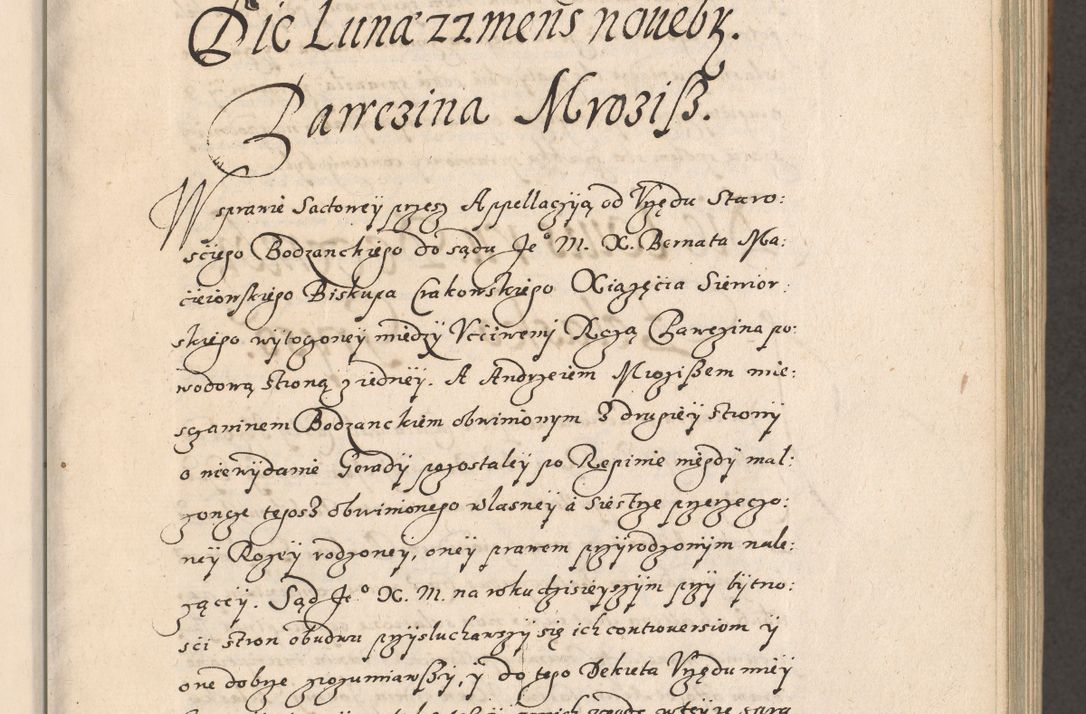 Die Lunæ 22 mens novebr.
Bawczina Mrozisz.
W sprawie Sądowey przez Appellaczyią od Urzędu Staro:
sciego Bodzanckiego do sądu Je° M. X. Bernata Ma:
cieiowskiego Biskupa Crakowskiego Xiążęcia Siewior:
skiego wytoczoney między Uccziwemi Rozą Bawczina po:
wodową stroną z iedney. A Andrzeiem Mroziszem mie:
szaninem Bodzanckiem obwinionym z drugiey strony
o niewydanie Gerady pozostałey po Reginie niegdy mał:
zonce tegosz obwinionego własney a siestrze przerzeczo:
ney Rozey rodzoney, oney prawem przyrodzonym nale:
zącey. Sąd Je° X. M. na roku dzisieyszym przy bytno:
sci stron obudwu przysłuchawszy się ich controversiom y
one dobrze zrozumiawszy, y do tego Dekreta Urzędu miey